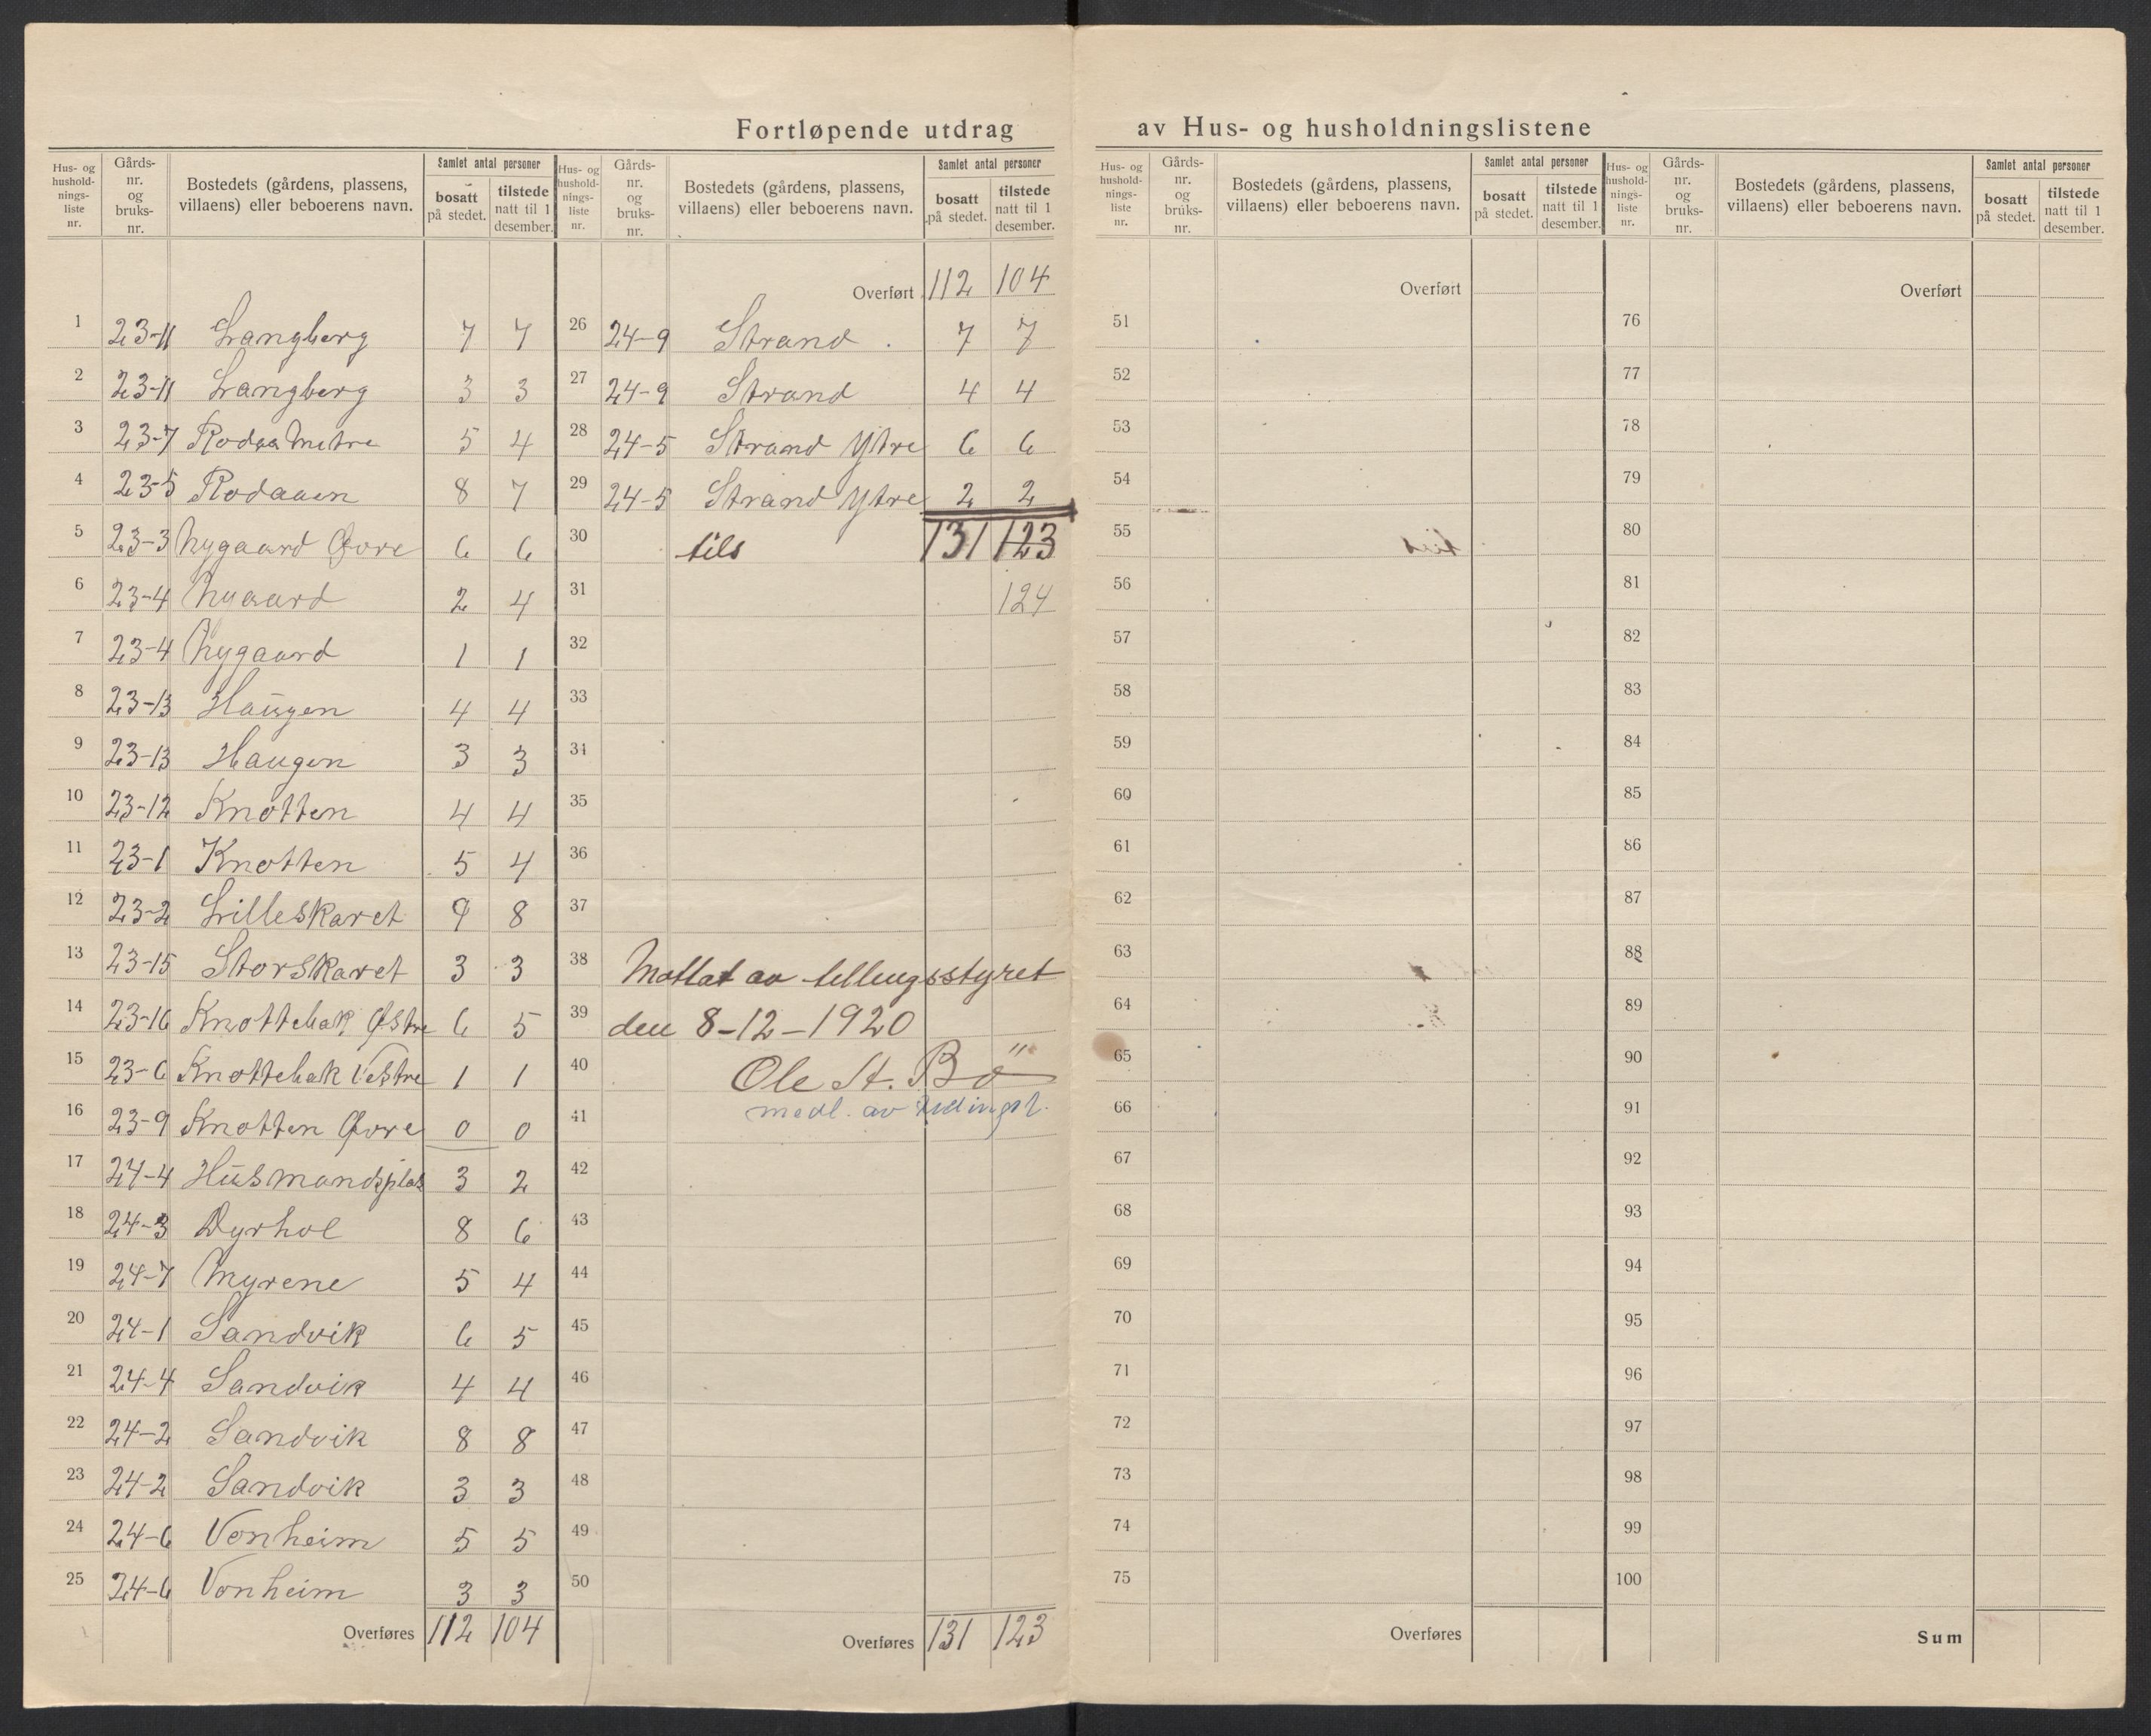 Fortløpende utdrag av Hus- og husholdningslistene
Hus- og husholdnings-liste nr. Gårds-nr. og bruks-nr. Bostedets (gårdens, plassens, villaens) eller beboerens navn. Samlet antal personer bosatt på stedet. tilstede natt til 1 desember.
1 23-11 Langberg 7 7
2 23-11 Langberg 3 3
3 23-7 Rodaa Metre 5 4
4 23-5 Rodaaen 8 7
5 23-3 Nygaard Øvre 6 6
6 23-4 Nygaard 2 4
7 23-4 Nygaard 1 1
8 23-13 Haugen 4 4
9 23-13 Haugen 3 3
10 23-12 Knotten 4 4
11 23-1 Knotten 5 4
12 23-2 Lilleskaret 9 8
13 23-15 Storskaret 3 3
14 23-16 Knottebak Østre 6 5
15 23-6 Knottebak Vestre 1 1
16 23-9 Knotten Øvre 0 0
17 24-4 Husmandsplas 3 2
18 24-3 Dyrhol 8 6
19 24-7 Myrene 5 4
20 24-1 Sandvik 6 5
21 24-4 Sandvik 4 4
22 24-2 Sandvik 8 8
23 24-2 Sandvik 3 3
24 24-6 Vonheim 5 5
25 24-6 Vonheim 3 3
Overføres 112 104
Hus- og husholdnings-liste nr. Gårds-nr. og bruks-nr. Bostedets (gårdens, plassens, villaens) eller beboerens navn. Samlet antal personer bosatt på stedet. tilstede natt til 1 desember.
Overført 112 104
26 24-9 Strand 7 7
27 24-9 Strand 4 4
28 24-5 Strand Ytre 6 6
29 24-5 Strand Ytre 2 2
30 tils 131 123
31 124
32
33
34
35
36
37
38 Mottat av tellingsstyret
39 den 8-12-1920
40 Ole St. Bö
41 medl. av tellingst.
42
43
44
45
46
47
48
49
50
Overføres 131 123
Hus- og husholdnings-liste nr. Gårds-nr. og bruks-nr. Bostedets (gårdens, plassens, villaens) eller beboerens navn. Samlet antal personer bosatt på stedet. tilstede natt til 1 desember.
Overført
51
52
53
54
55
56
57
58
59
60
61
62
63
64
65
66
67
68
69
70
71
72
73
74
75
Overføres
Hus- og husholdnings-liste nr. Gårds-nr. og bruks-nr. Bostedets (gårdens, plassens, villaens) eller beboerens navn. Samlet antal personer bosatt på stedet. tilstede natt til 1 desember.
Overført
76
77
78
79
80
81
82
83
84
85
86
87
88
89
90
91
92
93
94
95
96
97
98
99
100
Sum